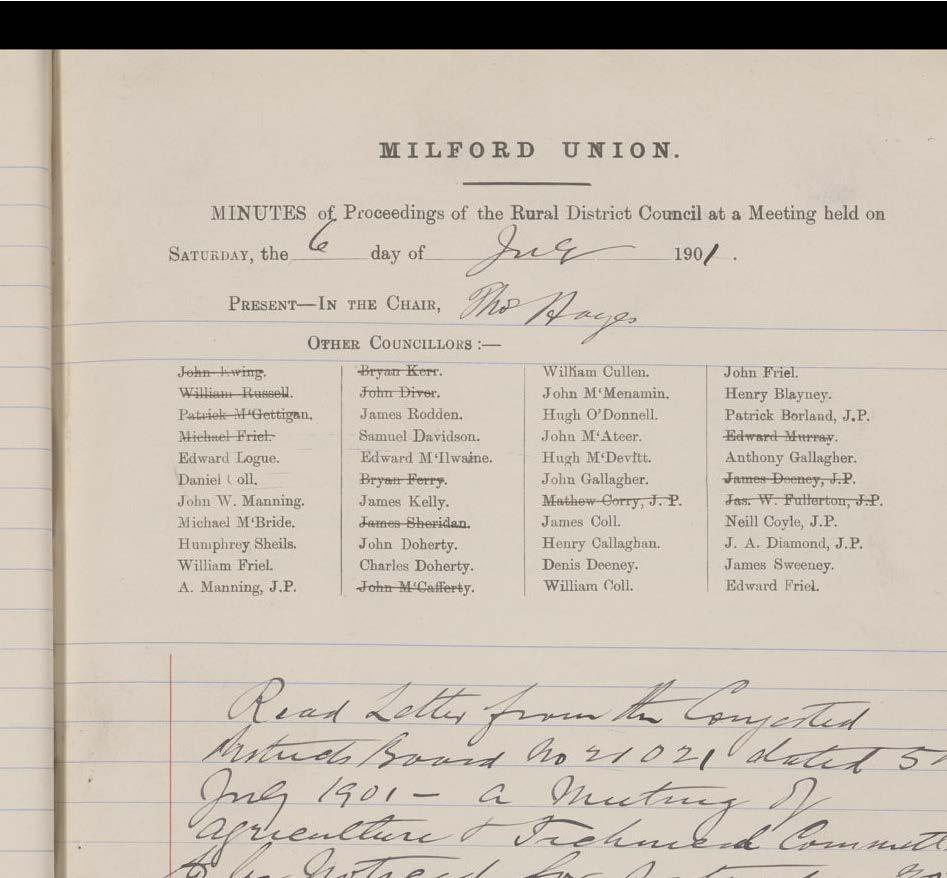 MILFORD UNION.
MINUTES of Proceedings of the Rural District Council at a Meeting held on
SATURDAY, the 6 day of July 1901.
PRESENT—IN THE CHAIR, Thos Hayes
OTHER COUNCILLORS :—
John Ewing.
William Russell.
Patrick M'Gettigan.
Michael Friel.
Edward Logue.
Daniel Coll.
John W. Manning.
Michael M'Bride.
Humphrey Sheils.
William Friel.
A. Manning, J.P.
Bryan Kerr.
John Diver.
James Rodden.
Samuel Davidson.
Edward M'Ilwaine.
Bryan Ferry.
James Kelly.
James Sheridan.
John Doherty.
Charles Doherty.
John M'Cafferty.
William Cullen.
John M'Menamin.
Hugh O'Donnell.
John M'Ateer.
Hugh M'Devitt.
John Gallagher.
Mathew Corry, J. P.
James Coll.
Henry Callaghan.
Denis Deeney.
William Coll.
John Friel.
Henry Blayney.
Patrick Borland, J.P.
Edward Murray.
Anthony Gallagher.
James Deeney, J.P.
Jas. W. Fullerton, J.P.
Neill Coyle, J.P.
J. A. Diamond, J.P.
James Sweeney.
Edward Friel.
Read Letter from the Congested
Districts Board No 21021 dated 5
July 1901 — a Meeting of
Agriculture & Technical Committ
to be